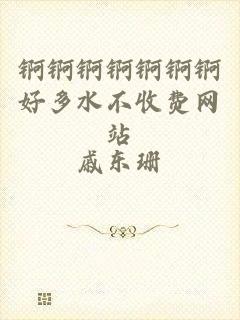 锕锕锕锕锕锕锕
好多水不收费网
站
戚东珊